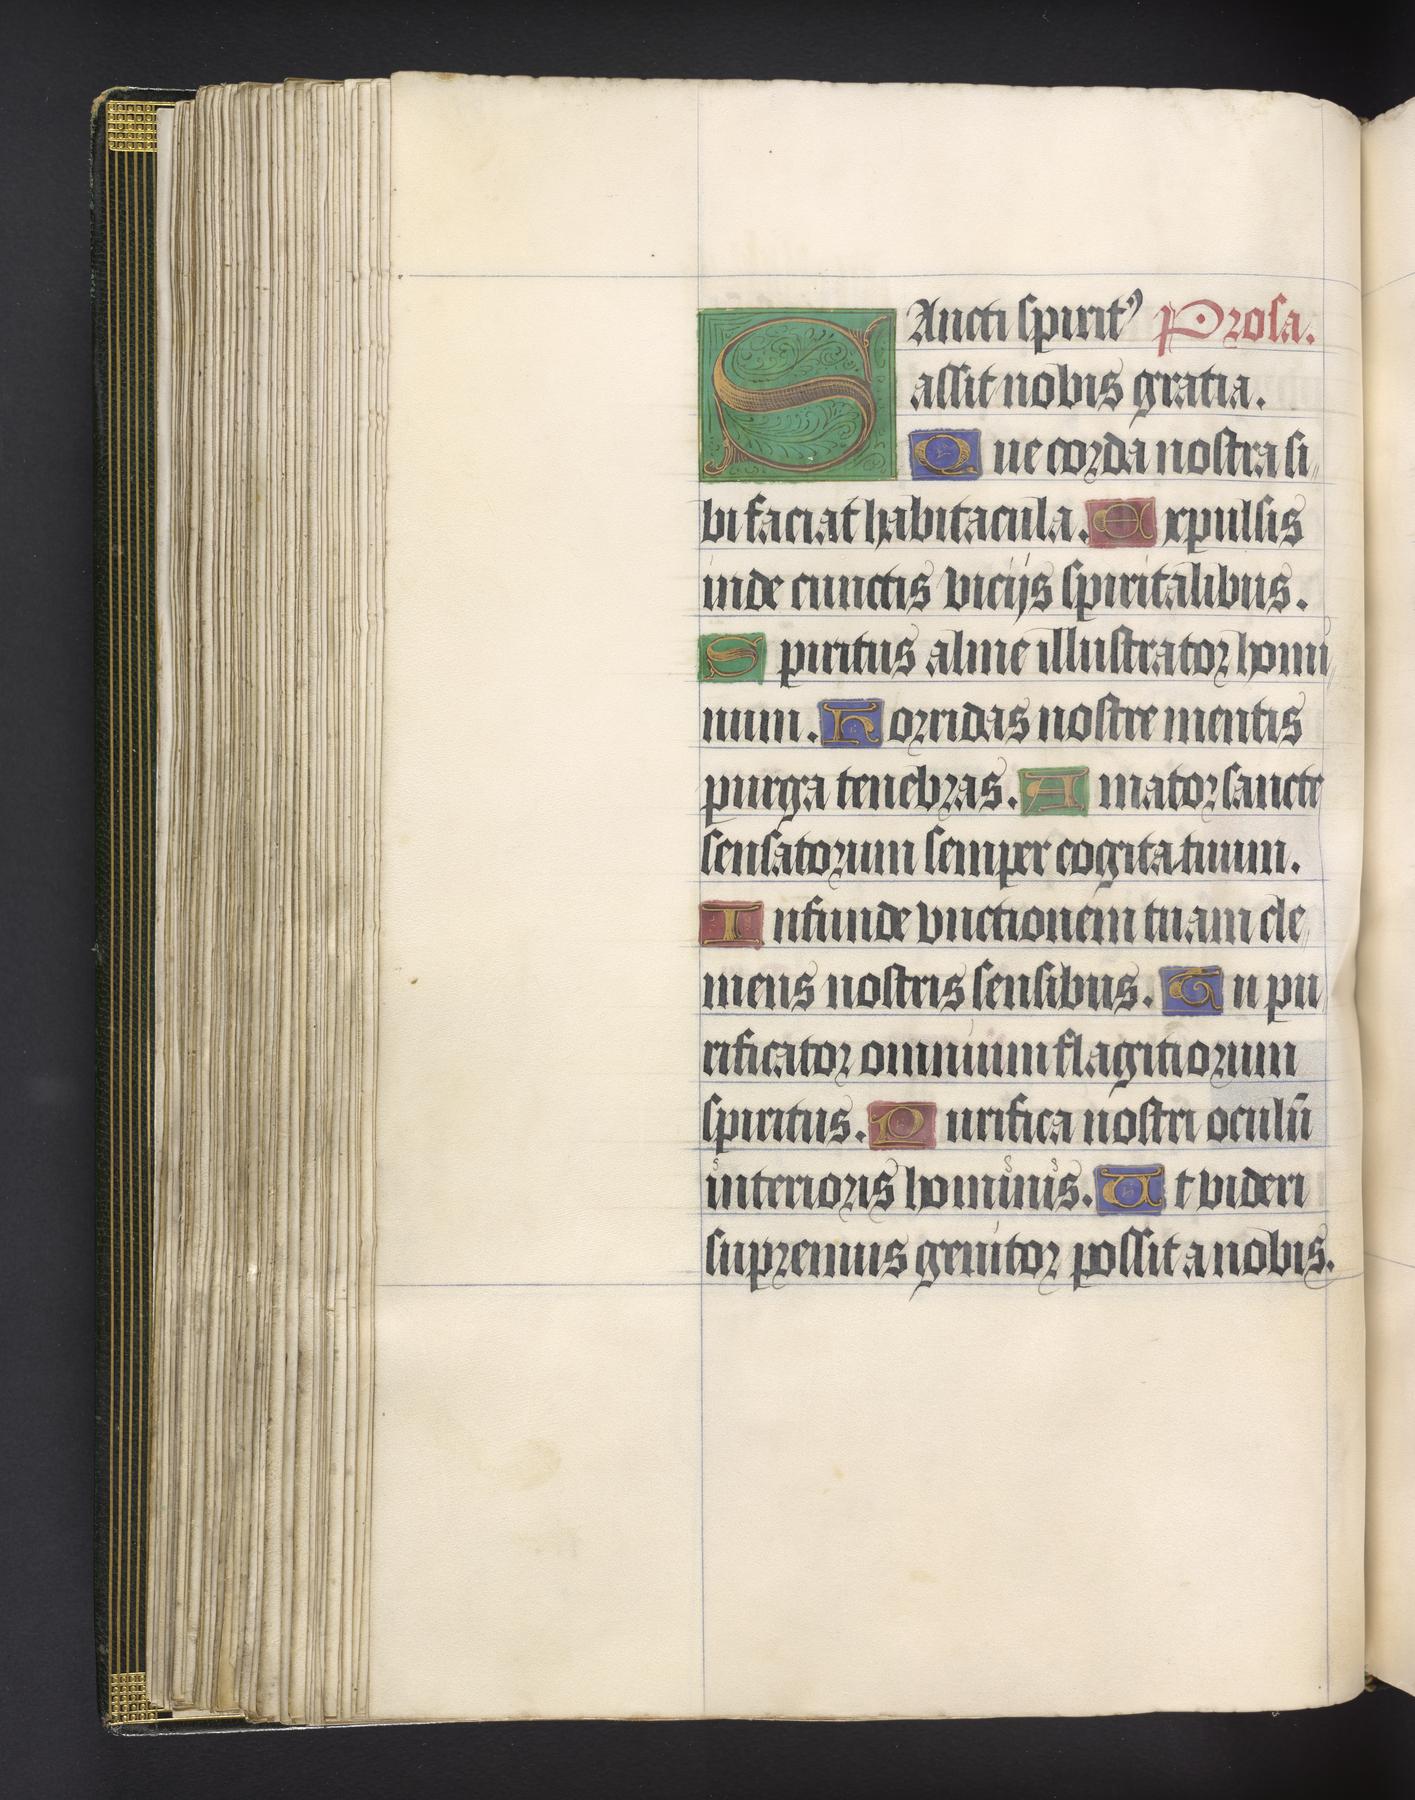 SAncti spirit⁹ Prosa.
assit nobis gratia.
Que corda nostra si„
bi faciat habitacula. Expulsis
inde cunctis vicijs spiritalibus.
Spiritus alme illustrator homi„
num. Horridas nostre mentis
purga tenebras. Amator sancte
sensatorum semper cogitatuum.
Infunde vnctionem tuam cle„
mens nostris sensibus. Tu pu„
rificator omnium flagitiorum
spiritus. Purifica nostri oculū
interioris hominis. Ut videri
supremus genitor possit a nobis.